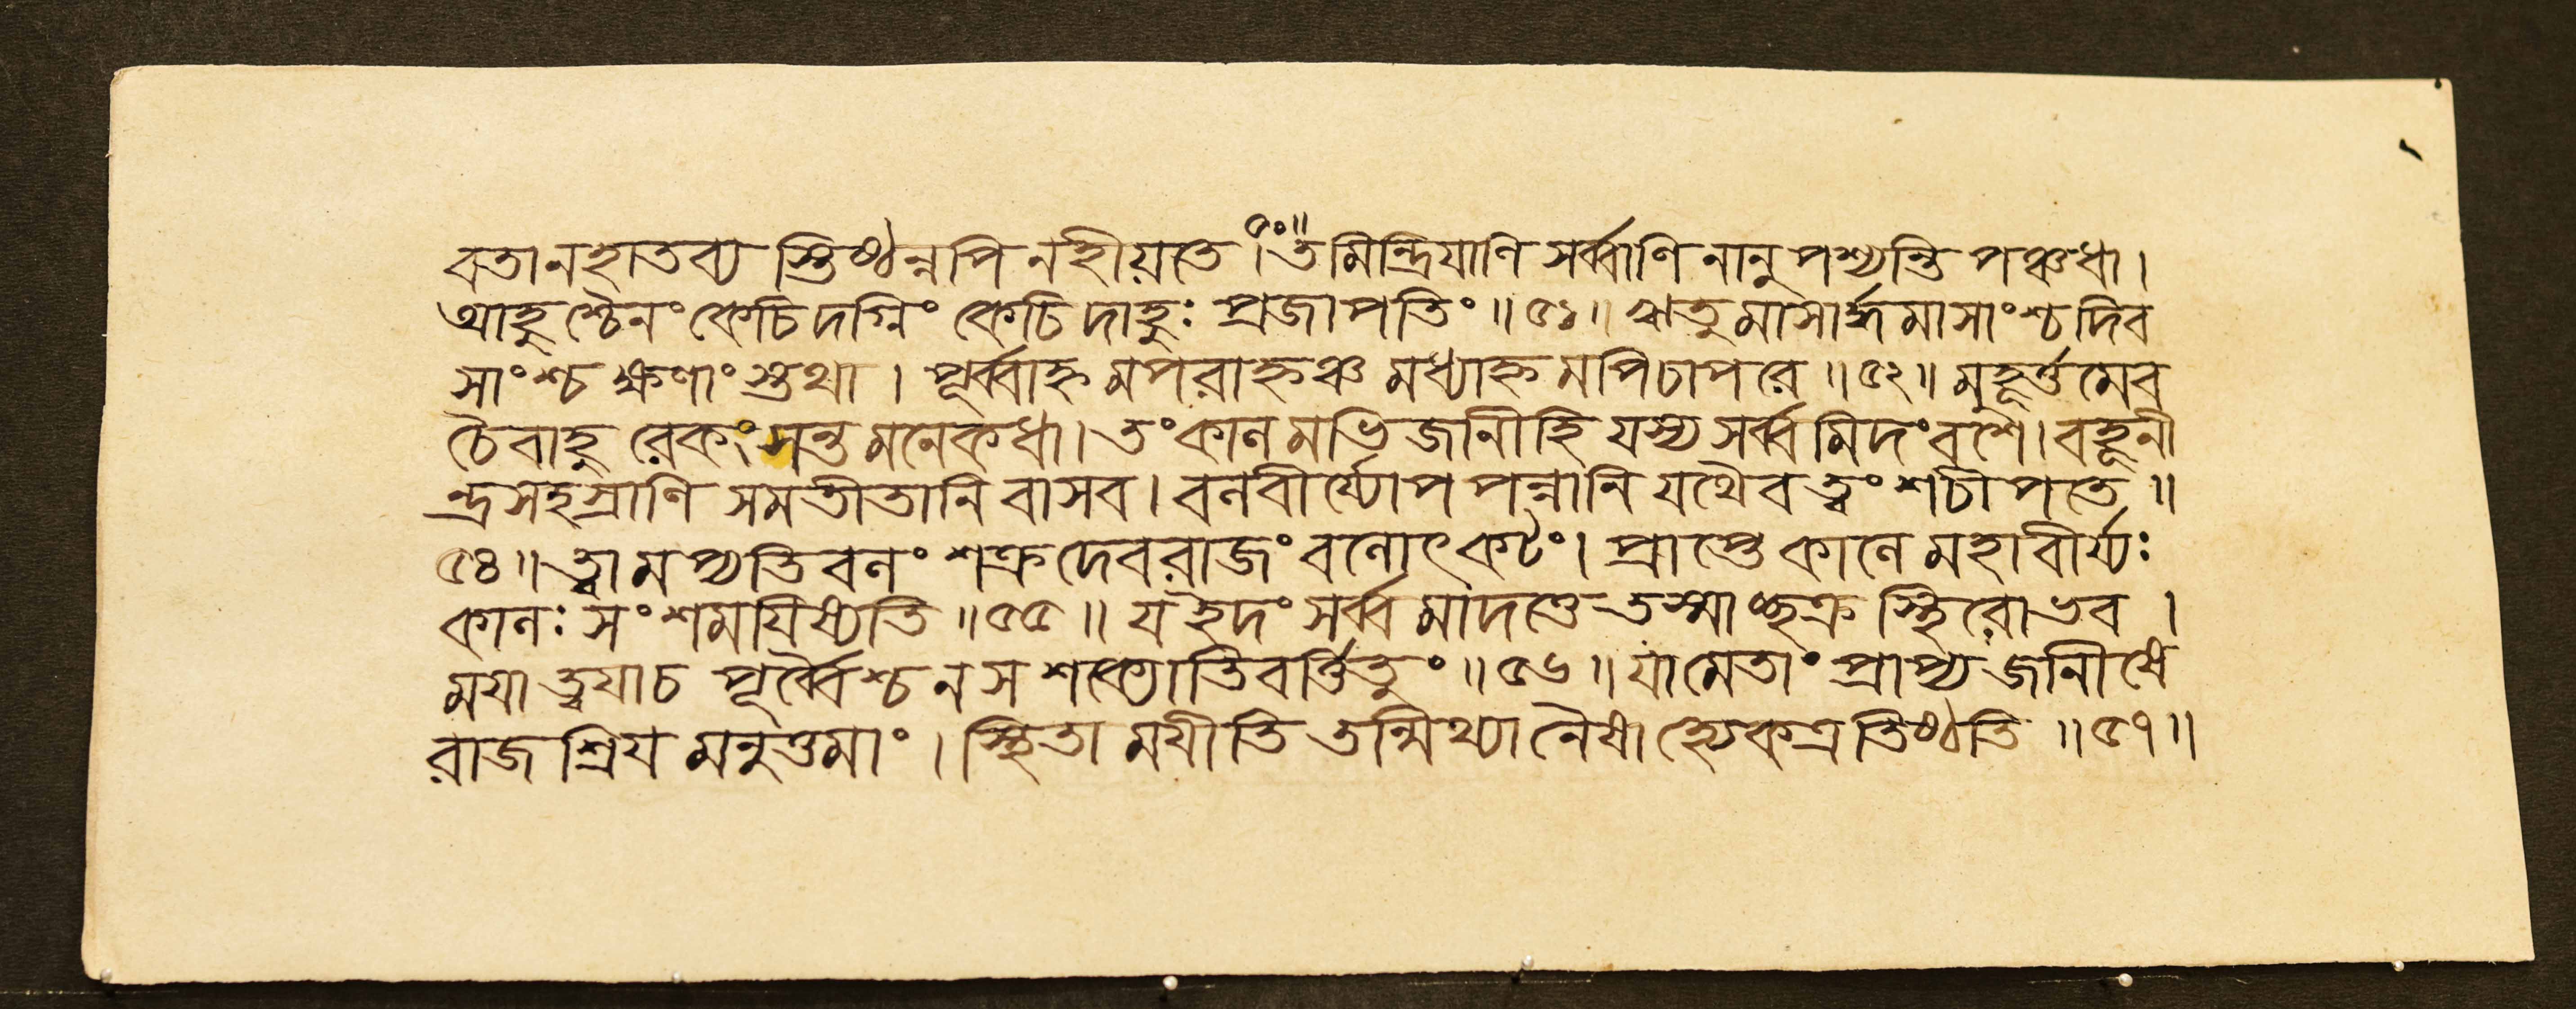 বতানহাতব্য স্তিষ্ঠন্নপি নহীয়তে ।৫০॥ তমিন্দ্রিযাণি সর্ব্বাণি নানুপশ্যন্তি পঞ্চধা ।
আহুশ্চৈনং কেচিদগ্নিং কেচিদাহুঃ প্রজাপতিং ॥৫১॥ ঋতুমাসার্দ্ধমাসাংশ্চ দিব
সাংশ্চ ক্ষণাংস্তথা । পূর্ব্বাহ্নমপরাহ্নঞ্চ মধ্যাহ্নমপিচাপরে ॥৫২॥ মুহূর্ত্তমেব
চৈবাহুরেকং সন্তমনেকধা । তং কালমভিজানীহি যস্য সর্ব্বমিদং বশে । বহূনী
ন্দ্রসহস্রাণি সমতীতানি বাসব । বলবীর্য্যোপপন্নানি যথৈব ত্বং শচীপতে ॥
৫৪॥ ত্বামপ্যতিবলং শক্র দেবরাজং বলোৎকটং । প্রাপ্তে কালে মহাবীর্য্যঃ
কালঃ সংশমযিষ্যতি ॥৫৫॥ য ইদং সর্ব্বমাদত্তে তস্মাচ্ছক্র স্থিরোভব ।
মযা ত্বযাচ পূর্ব্বৈশ্চ ন স শক্যোতিবর্ত্তিতুং ॥৫৬॥ যামেতাং প্রাপ্য জানীষে
রাজশ্রিযমনুত্তমাং । স্থিতা মযীতি তন্মিথ্যা নৈষাহ্যেকত্র তিষ্ঠতি ॥৫৭॥